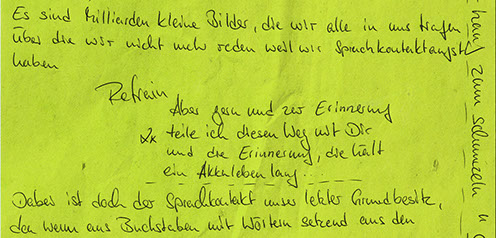 Es sind Milliarden kleine Bilder, die wir alle in uns tragen
über die wir nicht mehr reden weil wir Sprachkontaktangst
haben
Refrain
Aber gern und zur Erinnerung
2x teile ich diesen Weg mit Dir
und die Erinnerung, die hält
ein Akkuleben lang...
Dabei ist doch der Sprachkontakt unser letzter Grundbesitz,
den wenn aus Buchstaben mit Wörtern setzend aus den
zum schmunzeln